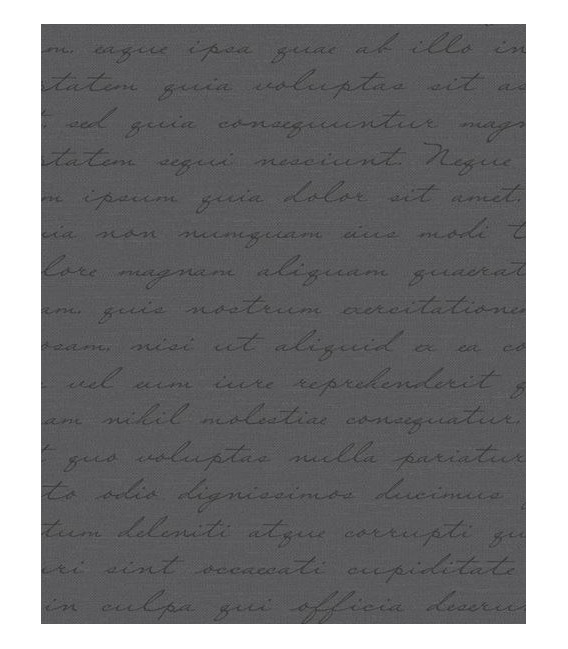 m. eaque ipsa quae ab illo in
tatem quia voluptas sit as
. sed quia consequuntur magn
tatem sequi nesciunt. Neque
m ipsum quia dolor sit amet.
ia non numquam eius modi t
lore magnam aliquam quaerat
am. quis nostrum exercitatione
osam. nisi ut aliquid ex ea co
vel eum iure reprehenderit q
am nihil molestiae consequatur.
quo voluptas nulla pariatur
to odio dignissimos ducimus
tum deleniti atque corrupti qu
ri sint occaecati cupiditate
in culpa qui officia deseru